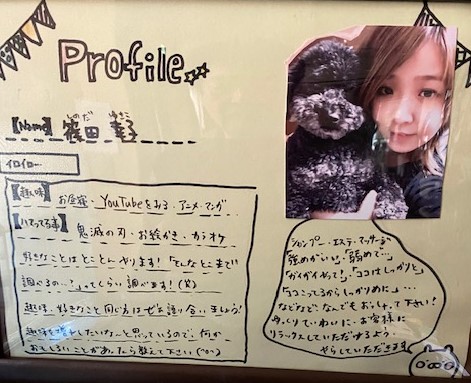 Profile
【Name】 篠田 幸子
しのだ ゆきこ
イロイロ…
【趣味】 お昼寝・YouTubeをみる・アニメ・マンガ
【ハマってる事】 鬼滅の刃・お絵かき・カラオケ
好きなことはとことんやります!「そんなとこまで
調べるの…!」ってくらい調べます!(笑)
趣味、好きなこと同じ方はぜひ語り合いましょう!
趣味を増やしたいな〜と思っているので、何か
おもしろいことがあったら教えて下さい(^o^)
シャンプー・エステ・マッサージ
「強めがいい」「弱めで」…
「ガイガイやって!」「ココはしっかりと」
「ココこってるからしっかりめに」…
などなど、なんでもおっしゃって下さい!
しっかりていねいに、お客様に
リラックスしていただけるよう
やらしていただきます